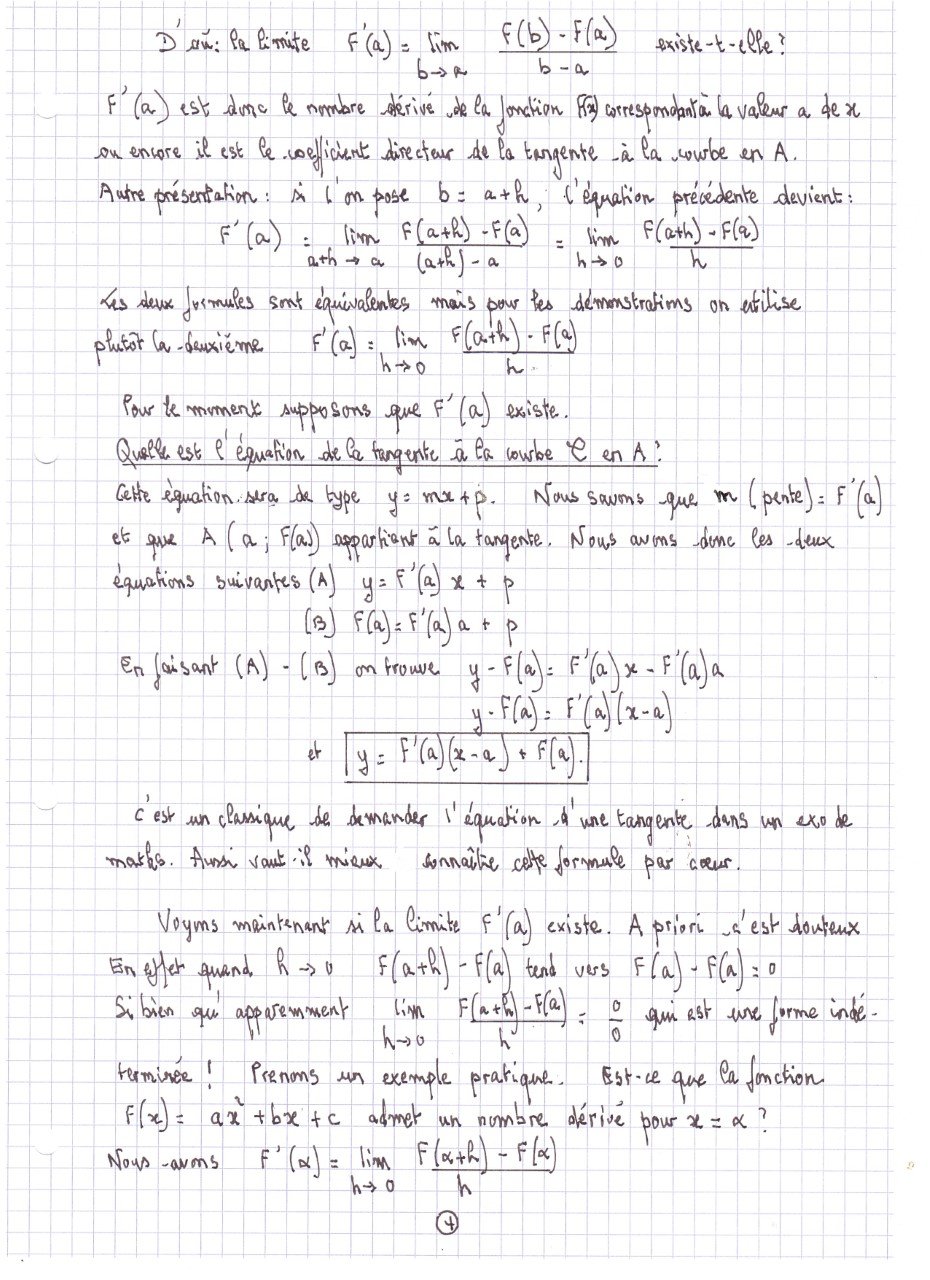 D'où: la limite F'(a) = lim b→a (F(b) - F(a))/(b - a) existe-t-elle?
F'(a) est donc le nombre dérivé de la fonction F(x) correspondant à la valeur a de x
ou encore il est le coefficient directeur de la tangente à la courbe en A.
Autre présentation: si l'on pose b = a+h, l'équation précédente devient:
F'(a) = lim a+h→a (F(a+h) - F(a))/((a+h) - a) = lim h→0 (F(a+h) - F(a))/h
Les deux formules sont équivalentes mais pour les démonstrations on utilise
plutôt la deuxième F'(a) = lim h→0 (F(a+h) - F(a))/h
Pour le moment supposons que F'(a) existe.
Quelle est l'équation de la tangente à la courbe C en A?
Cette équation sera de type y = mx + p. Nous savons que m (pente) = F'(a)
et que A (a; F(a)) appartient à la tangente. Nous avons donc les deux
équations suivantes (A) y = F'(a) x + p
(B) F(a) = F'(a) a + p
En faisant (A) - (B) on trouve y - F(a) = F'(a) x - F'(a) a
y - F(a) = F'(a) (x - a)
et y = F'(a) (x - a) + F(a).
c'est un classique de demander l'équation d'une tangente dans un exo de
maths. Aussi vaut-il mieux connaître cette formule par coeur.
Voyons maintenant si la limite F'(a) existe. A priori c'est douteux
En effet quand h → 0 F(a+h) - F(a) tend vers F(a) - F(a) = 0
Si bien qu'apparemment lim h→0 (F(a+h) - F(a))/h = 0/0 qui est une forme indé-
terminée! Prenons un exemple pratique. Est-ce que la fonction
F(x) = ax² + bx + c admet un nombre dérivé pour x = α ?
Nous avons F'(α) = lim h→0 (F(α+h) - F(α))/h
4